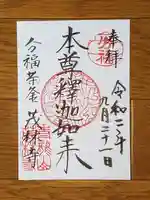 奉拝
令和二年
九月二十一日
本尊釋迦如来
分福茶釜
茂林寺